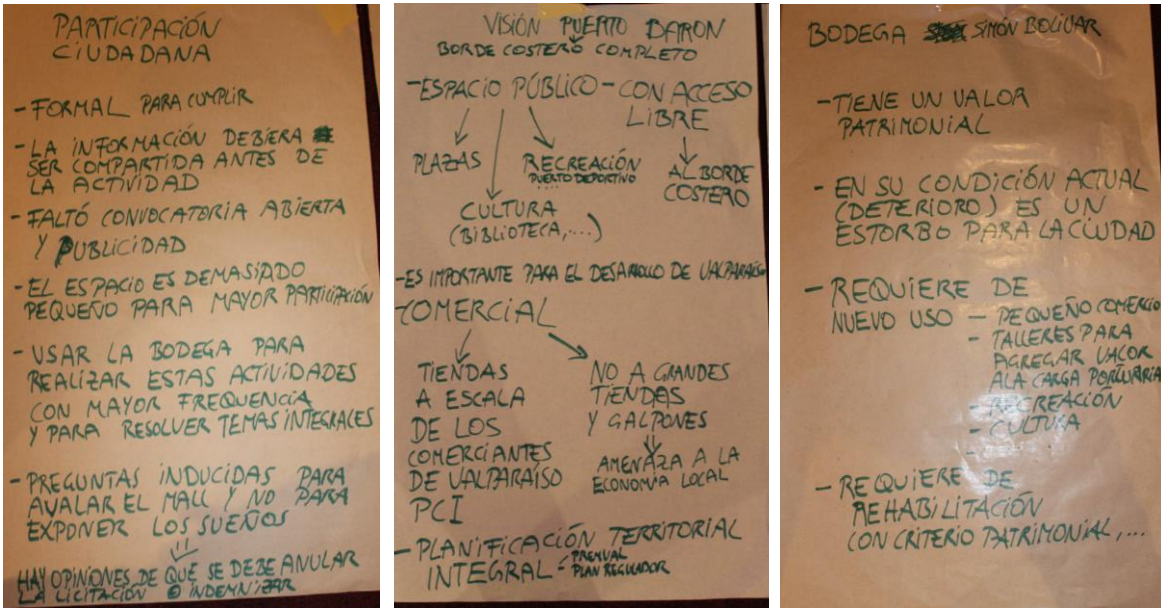 PARTICIPACIÓN
CIUDADANA
- FORMAL PARA CUMPLIR
- LA INFORMACIÓN DEBIERA
SER COMPARTIDA ANTES DE
LA ACTIVIDAD
- FALTÓ CONVOCATORIA ABIERTA
Y PUBLICIDAD
- EL ESPACIO ES DEMASIADO
PEQUEÑO PARA MAYOR PARTICIPACIÓN
- USAR LA BODEGA PARA
REALIZAR ESTAS ACTIVIDADES
CON MAYOR FREQUENCIA
Y PARA RESOLVER TEMAS INTEGRALES
- PREGUNTAS INDUCIDAS PARA
AVALAR EL MALL Y NO PARA
EXPONER LOS SUEÑOS
HAY OPINIONES DE QUE SE DEBE ANULAR
LA LICITACIÓN O INDEMNIZAR
VISIÓN PUERTO BARON
BORDE COSTERO COMPLETO
- ESPACIO PÚBLICO - CON ACCESO
LIBRE
PLAZAS
RECREACIÓN
PUERTO DEPORTIVO
....
AL BORDE
COSTERO
CULTURA
(BIBLIOTECA,....)
- ES IMPORTANTE PARA EL DESAROLLO DE VALPARAÍSO
- COMERCIAL
TIENDAS
A ESCALA
DE LOS
COMERCIANTES
DE VALPARAÍSO
PCI
NO A GRANDES
TIENDAS
Y GALPONES
AMENAZA A LA
ECONOMÍA LOCAL
- PLANIFICACIÓN TERRITORIAL
INTEGRAL - PREMVAL
- PLAN REGULADOR
BODEGA SIMÓN BOLIVAR
- TIENE UN VALOR
PATRIMONIAL
- EN SU CONDICIÓN ACTUAL
(DETERIORO) ES UN
ESTORBO PARA LA CIUDAD
- REQUIERE DE
NUEVO USO - PEQUEÑO COMERCIO
- TALLERES PARA
AGREGAR VALOR
A LA CARGA PORTUARIA
- RECREACIÓN
- CULTURA
- ....
- REQUIERE DE
REHABILITACIÓN
CON CRITERIO PATRIMONIAL,...